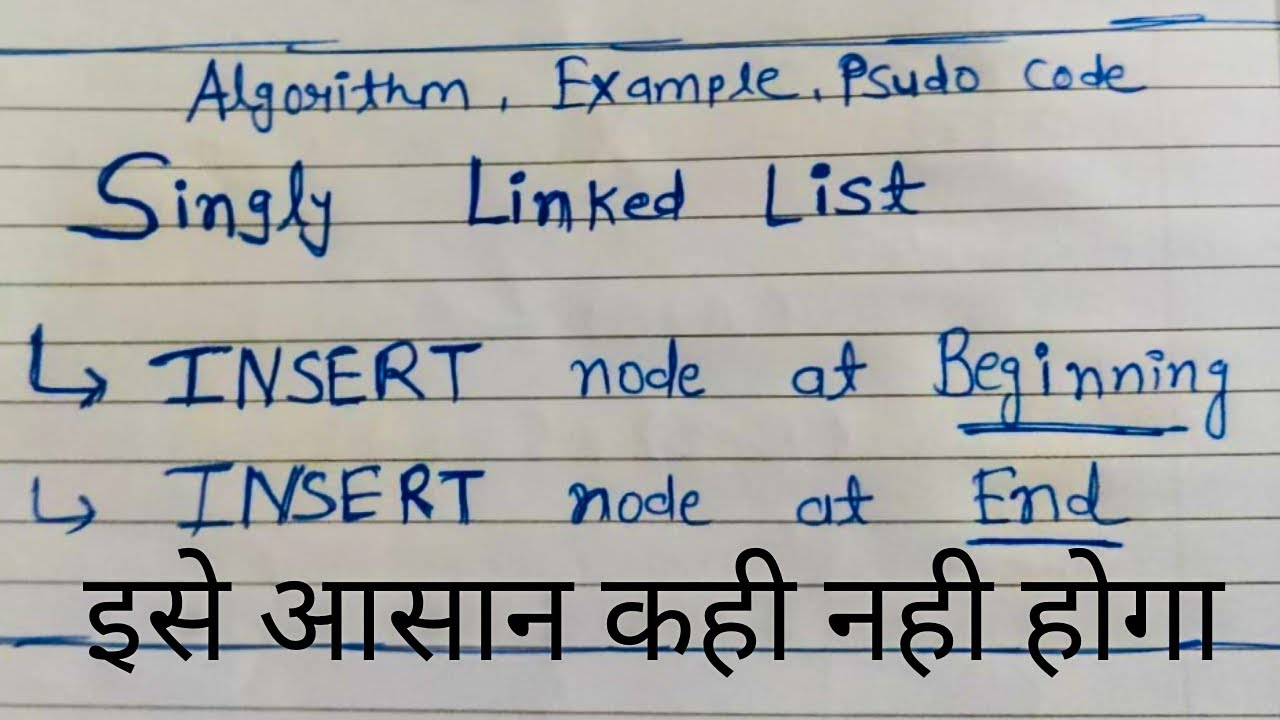 Algorithm, Example, Psudo code
Singly Linked List
↳ INSERT node at Beginning
↳ INSERT node at End
इसे आसान कही नही होगा